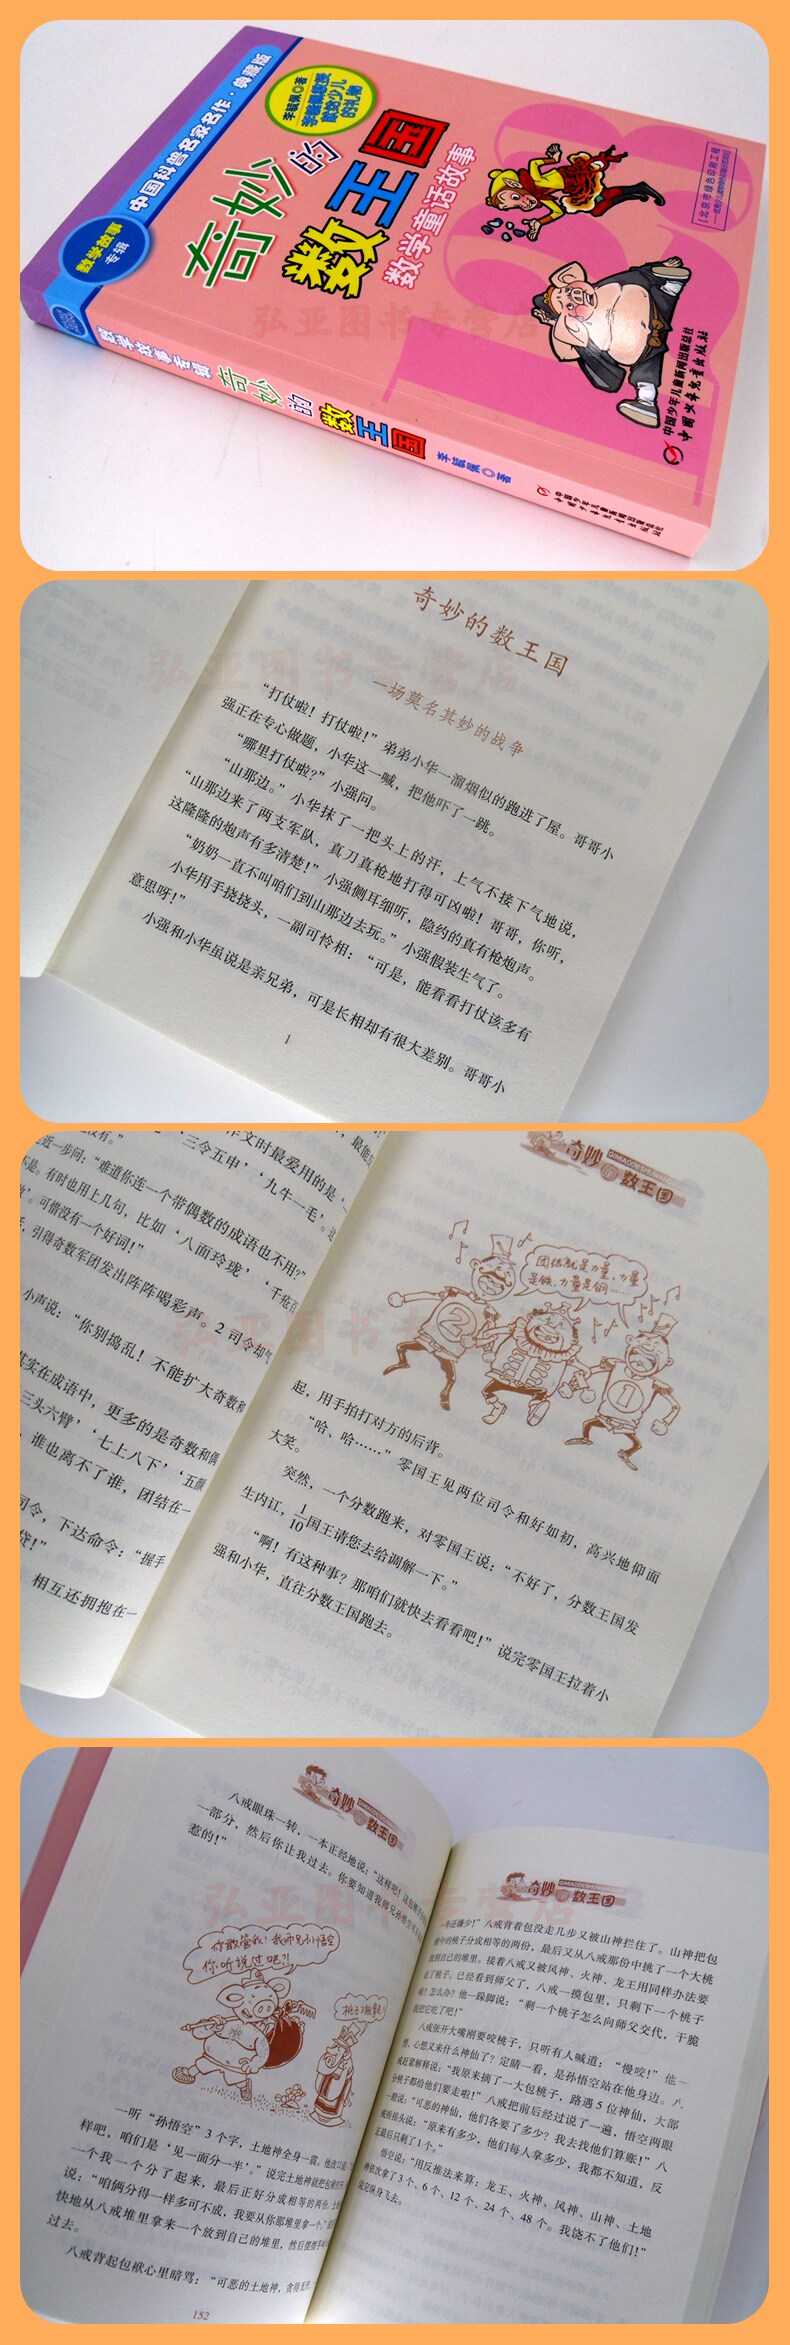 中国科普名家名作·典藏版
数学故事
专辑
李毓佩◎著
李毓佩教授
献给少儿
的礼物
奇妙的
数王国
数学童话故事
中国少年儿童新闻出版总社
中国少年儿童出版社
数学故事专辑 奇妙的数王国 李毓佩◎著
中国少年儿童新闻出版总社
中国少年儿童出版社
弘亚图书专营店
奇妙的数王国
弘亚图书专营店
一场莫名其妙的战争
“打仗啦！打仗啦！”弟弟小华一溜烟似的跑进了屋。哥哥小
强正在专心做题，小华这一喊，把他吓了一跳。
“哪里打仗啦？”小强问。
“山那边。”小华抹了一把头上的汗，上气不接下气地说，
“山那边来了两支军队，真刀真枪地打得可凶啦！哥哥，你听，
这隆隆的炮声有多清楚！”小强侧耳细听，隐约的真有枪炮声。
“奶奶一直不叫咱们到山那边去玩。”小强假装生气了。
小华用手挠挠头，一副可怜相：“可是，能看看打仗该多有
意思呀！”
小强和小华虽说是亲兄弟，可是长相却有很大差别。哥哥小
1
作文时最爱用的是‘一
‘三令五申’‘九牛一毛’。
近一步问：“难道你连一个带偶数的成语也不用？”
不是。有时也用上几句，比如‘八面玲珑’‘千疮百
’。可惜没有一个好词！”
引得奇数军团发出阵阵喝彩声。2司令却气
小声说：“你别捣乱！不能扩大奇数和
其实在成语中，更多的是奇数和偶
三头六臂’‘七上八下’‘五颜
谁也离不了谁，团结在一
司令，下达命令：“握手
相互还拥抱在一
奇妙的数王国
团结就是力量，力量
是铁，力量是钢……
2
1
起，用手拍打对方的后背。
“哈、哈……”零国王见两位司令和好如初，高兴地仰面
大笑。
突然，一个分数跑来，对零国王说：“不好了，分数王国发
生内讧，1/10国王请您去给调解一下。”
“啊！有这种事？那咱们就快去看看吧！”说完零国王拉着小
强和小华，直往分数王国跑去。
奇妙的数王国
八戒眼珠一转，一本正经地说：“这样吧！
一部分，然后你让我过去。你要知道我师兄
惹的！”
弘亚图书专营店
你敢管我！我师兄孙悟空
你听说过吧？！
一听“孙悟空”3个字，土地神全身一震。
样吧，咱们是‘见一面分一半’。”说完土地神就把包
一个我一个分了起来，最后正好分成相等的两份。
说：“咱俩分得一样多可不成，我要从你那堆里拿一个。”
快地从八戒堆里拿来一个放到自己的堆里，然后
过去。
八戒背起包袱心里暗骂：“可恶的土地神，贪得无厌
152
奇妙的数王国
八戒背着包没走几步又被山神拦住了。山神把包
中的桃子分成相等的两份，最后又从八戒那份中挑了一个大桃
放到自己的堆里。接着八戒又被风神、火神、龙王用同样办法要
走了桃子。已经看到师父了，八戒一摸包里，只剩下一个桃子
啦！怎么办？他一跺脚说：“剩一个桃子怎么向师父交代，干脆
我把它吃了吧！”
八戒张开大嘴刚要咬桃子，只听有人喊道：“慢咬！”他一
愣，心想又来什么神仙了？定睛一看，是孙悟空站在他身边。八
戒赶紧解释说：“我原来摘了一大包桃子，路遇5位神仙，大部
分桃子都给他们要走啦！”八戒把前后经过说了一遍，悟空两眼
一瞪说：“可恶的神仙，他们各要了多少？我去找他们算账！”八
戒摇摇头说：“原来有多少，他们每人拿多少，我都不知道，反
正最后只剩了1个。”
悟空说：“用反推法来算：龙王、火神、风神、山神、土地
神依次拿了3个、6个、12个、24个、48个。我饶不了他们！”
说完纵身飞去。